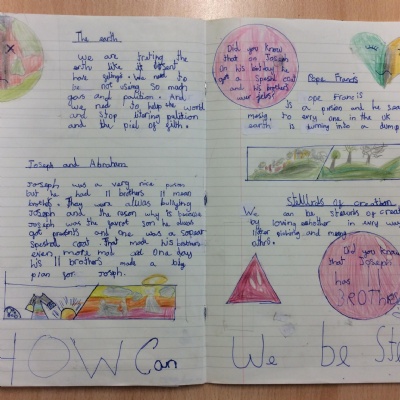 The earth
We are treating the
earth like it dosent
have feelings. We need to
be not using so much
gas and palition. And
we need to help the world
and stop litering palition
and the piel of filth.
Joseph and Abraham
Joseph was a very nice person
but he had 11 mean
brothers. They were allways bullying
Joseph and the reson why is because
Joseph was the favrot son he always
got presents and one was a
speshel coat. That made his brothers
even more mad and one day
his 11 brothers made a big
plan for Joseph.
HOW Can
Did you know
that on Joseph
on his birthday he
got a speshal coat
and his brothers
wer jelles?
Pope Francis
ope Francis
is a person and he sent
to evry one in the UK
earth is turning into a dump
We can be
by loving eachother in evry way
litter picking and meney
others.
Did you know
that Joseph
has
brother
We be Ste